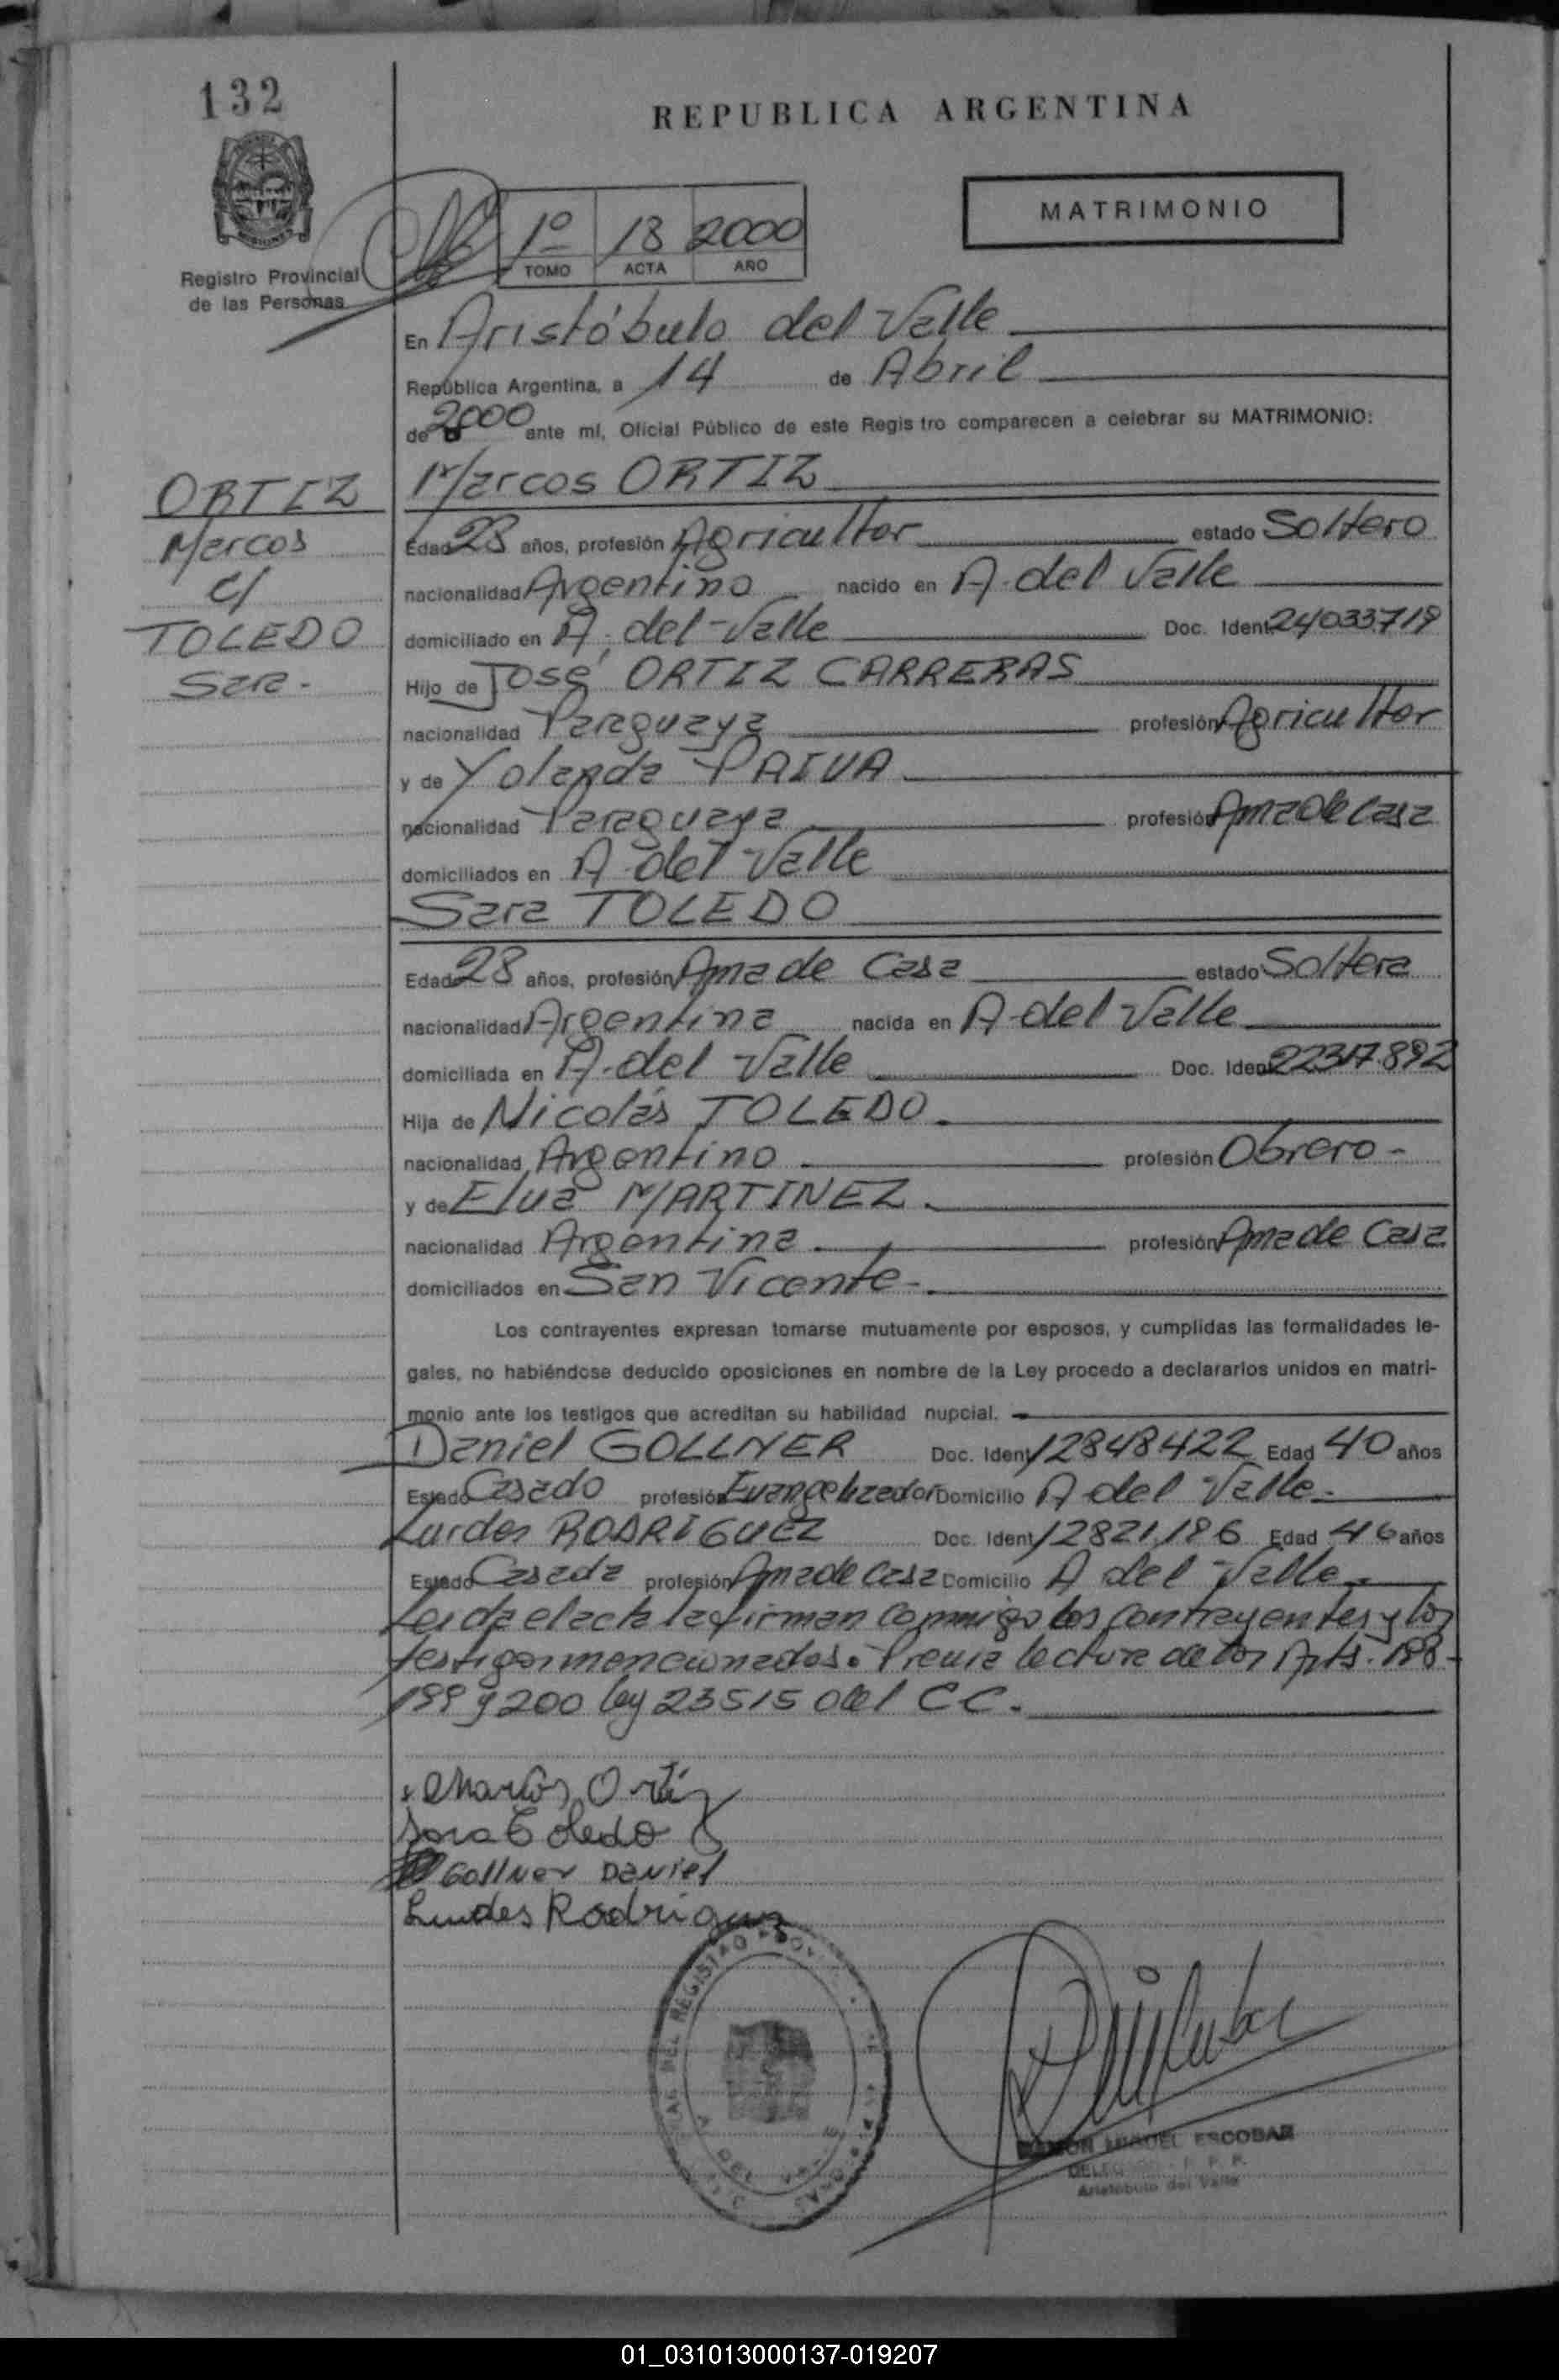 132
REPUBLICA ARGENTINA
MISIONES
Registro Provincial
de las Personas
1º 18 2000
TOMO ACTA AÑO
MATRIMONIO
En Aristóbulo del Valle
República Argentina, a 14 de Abril
de 2000 ante mí, Oficial Público de este Regis tro comparecen a celebrar su MATRIMONIO:
ORTIZ
Marcos
c/
TOLEDO
Sara.-
Marcos ORTIZ
Edad 28 años, profesión Agricultor estado Soltero
nacionalidad Argentino nacido en A. del Valle
domiciliado en A. del Valle Doc. Ident.
Hijo de José ORTIZ CARRERAS
nacionalidad Paraguaya profesión Agricultor
y de Yolanda PAIVA
nacionalidad Paraguaya profesión Ama de Casa
domiciliados en A. del Valle
Sara TOLEDO
Edad 28 años, profesión Ama de Casa estado Soltera
nacionalidad Argentina nacida en A. del Valle
domiciliada en A. del Valle Doc. Ident. 22317.892
Hija de Nicolás TOLEDO.
nacionalidad Argentino profesión Obrero -
y de Elva MARTINEZ.
nacionalidad Argentina profesión Ama de Casa
domiciliados en San Vicente-.
Los contrayentes expresan tomarse mutuamente por esposos, y cumplidas las formalidades le-
gales, no habiéndose deducido oposiciones en nombre de la Ley procedo a declararlos unidos en matri-
monio ante los testigos que acreditan su habilidad nupcial.
Daniel GOLLNER Doc. Ident. 12848422 Edad 40 años
Estado Casado profesión Evangelizador Domicilio A del Valle.-
Lurdes RODRIGUEZ Doc. Ident. 12821.186 Edad 46 años
Estado Casada profesión Ama de Casa Domicilio A del Valle.-
Leida el acta la firman conmigo los contrayentes y los
testigos mencionados. Previa lectura de los Arts. 198-
199 y 200 ley 23515 del CC.
Marcos Ortíz
Sara Toledo
Gollner Daniel
Lurdes Rodriguez
RAMON MIGUEL ESCOBAR
Aristóbulo del Valle
01_031013000137-019207